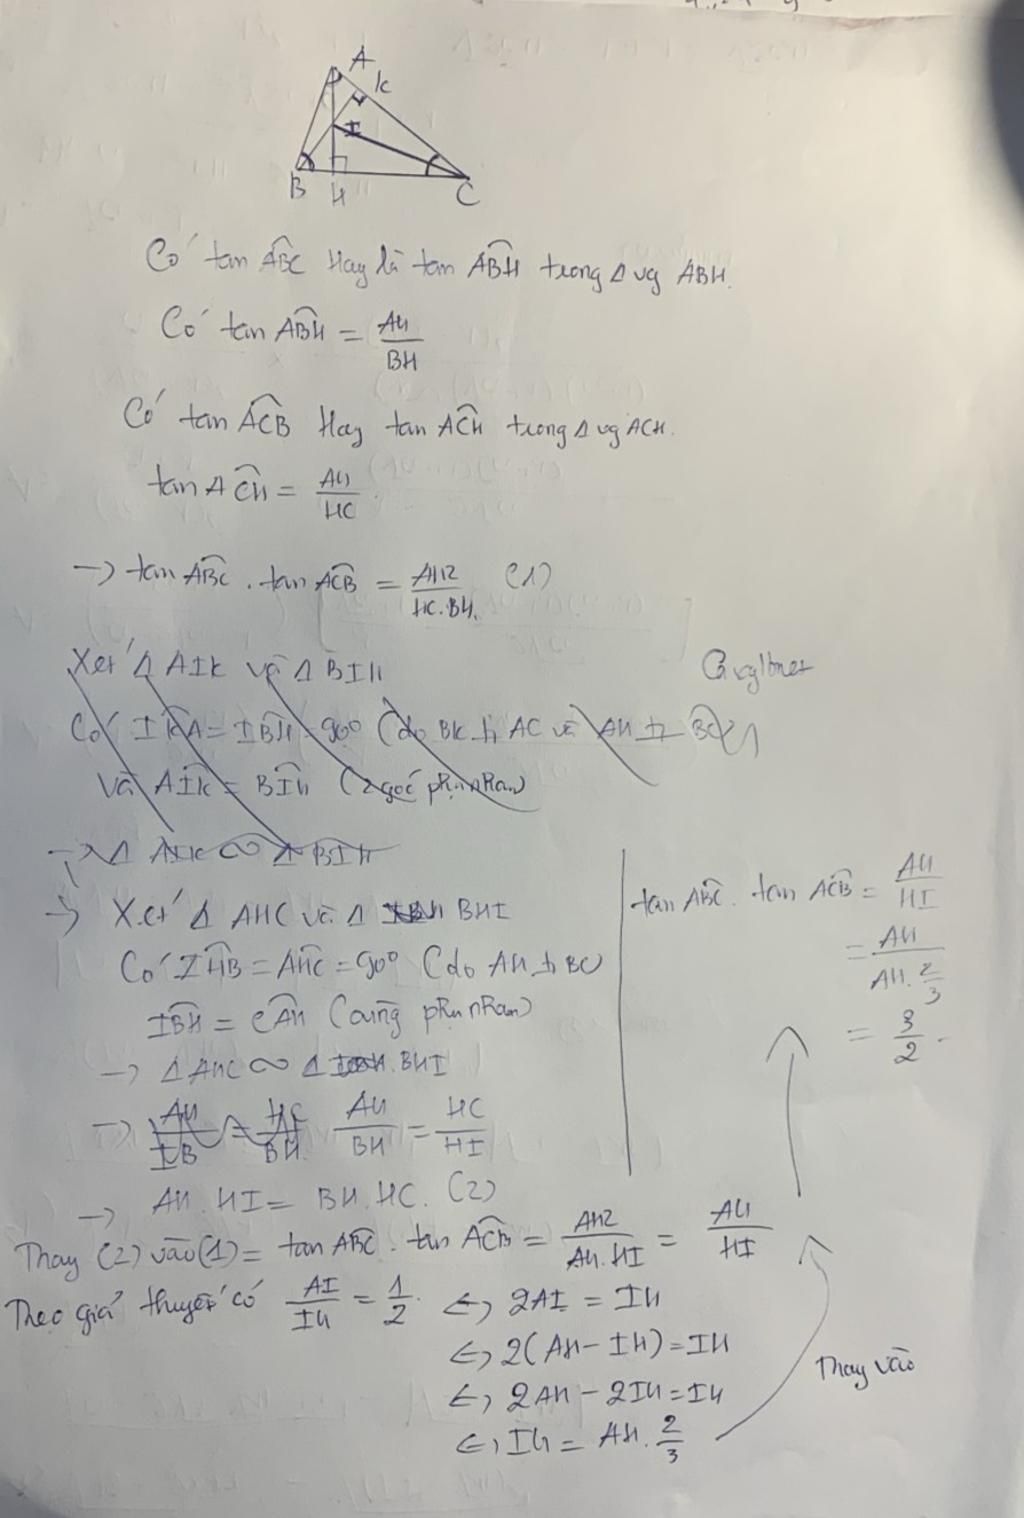 A
K
I
B H C
Có tan ABC Hay là tan ABH trong Δ vg ABH.
Có tan ABH = AH/BH
Có tan ACB Hay tan ACH trong Δ vg ACH.
tan ACH = AH/HC
-> tan ABC . tan ACB = AH2/HC.BH. (1)
Xét Δ AIK và Δ BIH
Có IKA = IBH = 90° (do BK ⊥ AC và AH ⊥ BC)
và AIK = BIH (2 góc phụ nhau)
-> Δ AIK ∽ Δ BIH
-> Xét Δ AHC và Δ BHI
Có IHB = AHC = 90° (do AH ⊥ BC)
IBH = CAH (cùng phụ nhau)
-> Δ AHC ∽ Δ BHI
-> AH/IB = HC/BH AH/BH = HC/HI
-> AH . HI = BH . HC. (2)
Thay (2) vào (1) = tan ABC . tan ACB = AH2/AH.HI = AH/HI
Theo giả thuyết có AI/IH = 1/2. <=> 2AI = IH
<=> 2(AH - IH) = IH
<=> 2AH - 2IH = IH
<=> IH = AH . 2/3
Thay vào
tan ABC . tan ACB = AH/HI
= AH/AH.2/3
= 3/2.